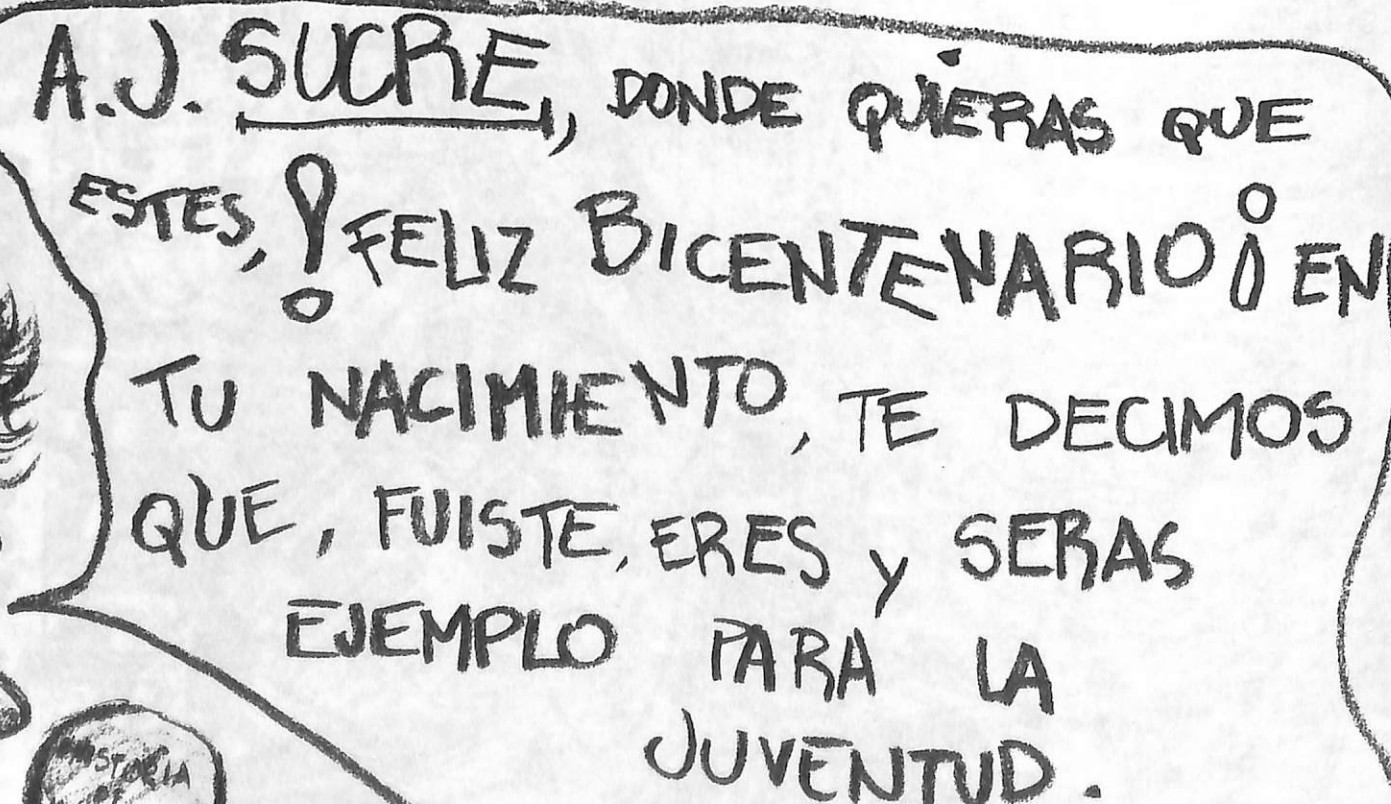 A.J. SUCRE, DONDE QUIERAS QUE
ESTES, !FELIZ BICENTENARIO¡ EN
TU NACIMIENTO, TE DECIMOS
QUE, FUISTE, ERES y SERAS
EJEMPLO PARA LA
JUVENTUD.
HISTORIA